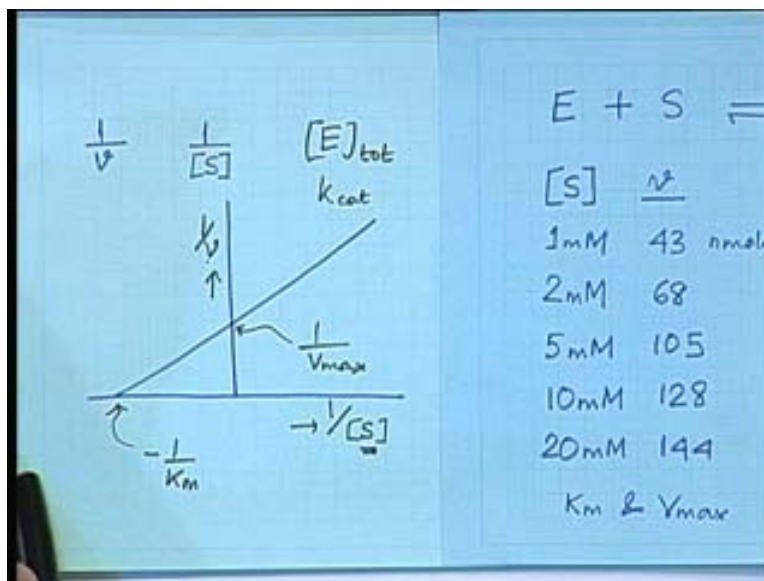 1/v 1/[S] [E]tot
kcat
1/v
↑
1/Vmax
→ 1/[S]
-1/Km
E + S ⇌
[S] v
1mM 43 nmol
2mM 68
5mM 105
10mM 128
20mM 144
Km & Vmax